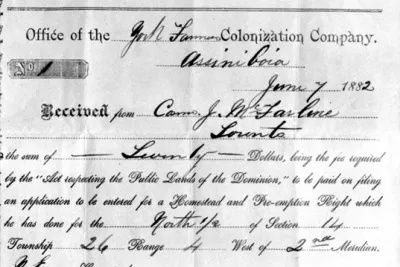 Office of the York Farmers Colonization Company.
Assiniboia
No. 1 June 7 1882
Received from J. McFarlene
Toronto
the sum of — Twenty — Dollars, being the fee required
by the "Act respecting the Public Lands of the Dominion," to be paid on filing
an application to be entered for a Homestead and Pre-emption Right which
he has done for the North 1/2 of Section 14
Township 26 Range 4 West of 2nd Meridian.